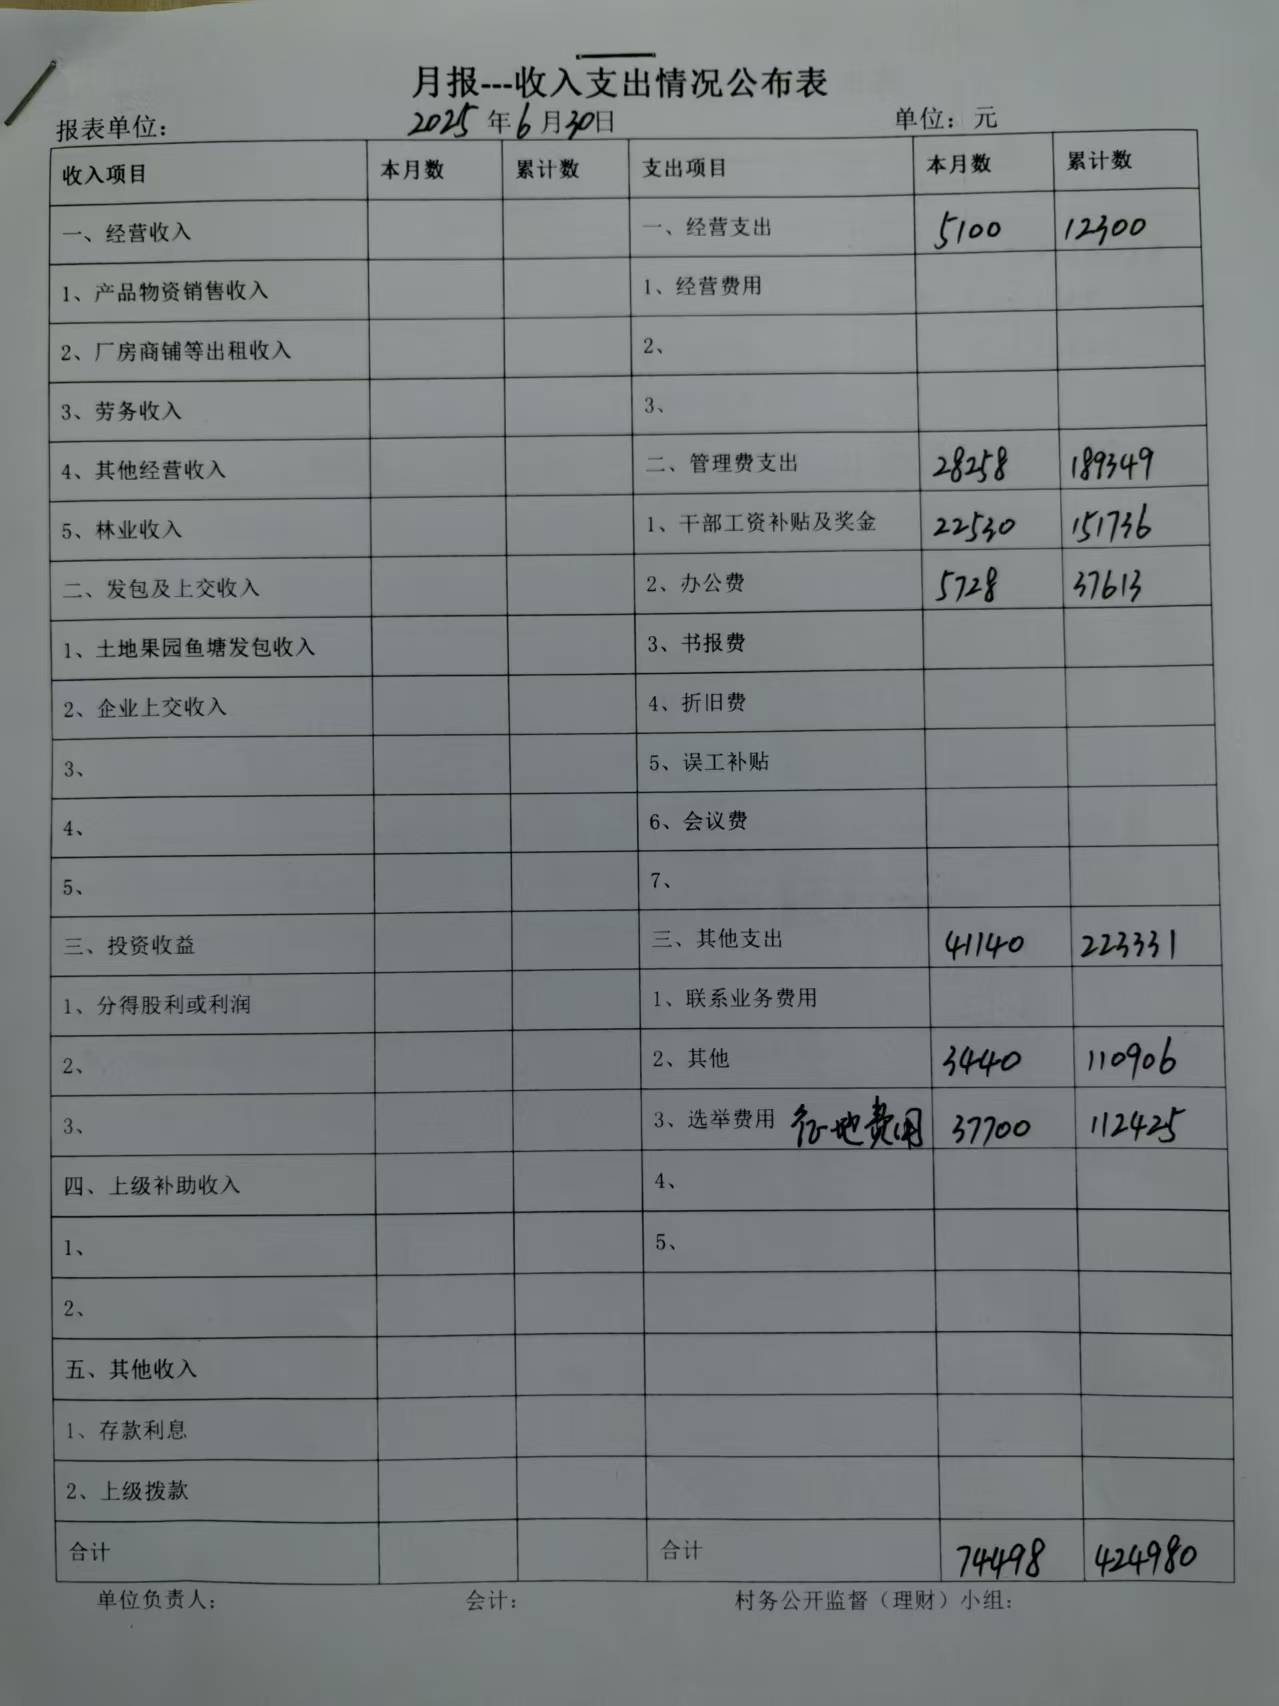 月报---收入支出情况公布表
报表单位： 2025 年 6 月 30 日 单位：元
收入项目 本月数 累计数 支出项目 本月数 累计数
一、经营收入 一、经营支出 5100 12300
1、产品物资销售收入 1、经营费用
2、厂房商铺等出租收入 2、
3、劳务收入 3、
4、其他经营收入 二、管理费支出 28258 189349
5、林业收入 1、干部工资补贴及奖金 22530 151736
二、发包及上交收入 2、办公费 5728 37613
1、土地果园鱼塘发包收入 3、书报费
2、企业上交收入 4、折旧费
3、 5、误工补贴
4、 6、会议费
5、 7、
三、投资收益 三、其他支出 41140 223331
1、分得股利或利润 1、联系业务费用
2、 2、其他 3440 110906
3、 3、选举费用 征地费用 37700 112425
四、上级补助收入 4、
1、 5、
2、
五、其他收入
1、存款利息
2、上级拨款
合计 合计 74498 424980
单位负责人： 会计： 村务公开监督（理财）小组：